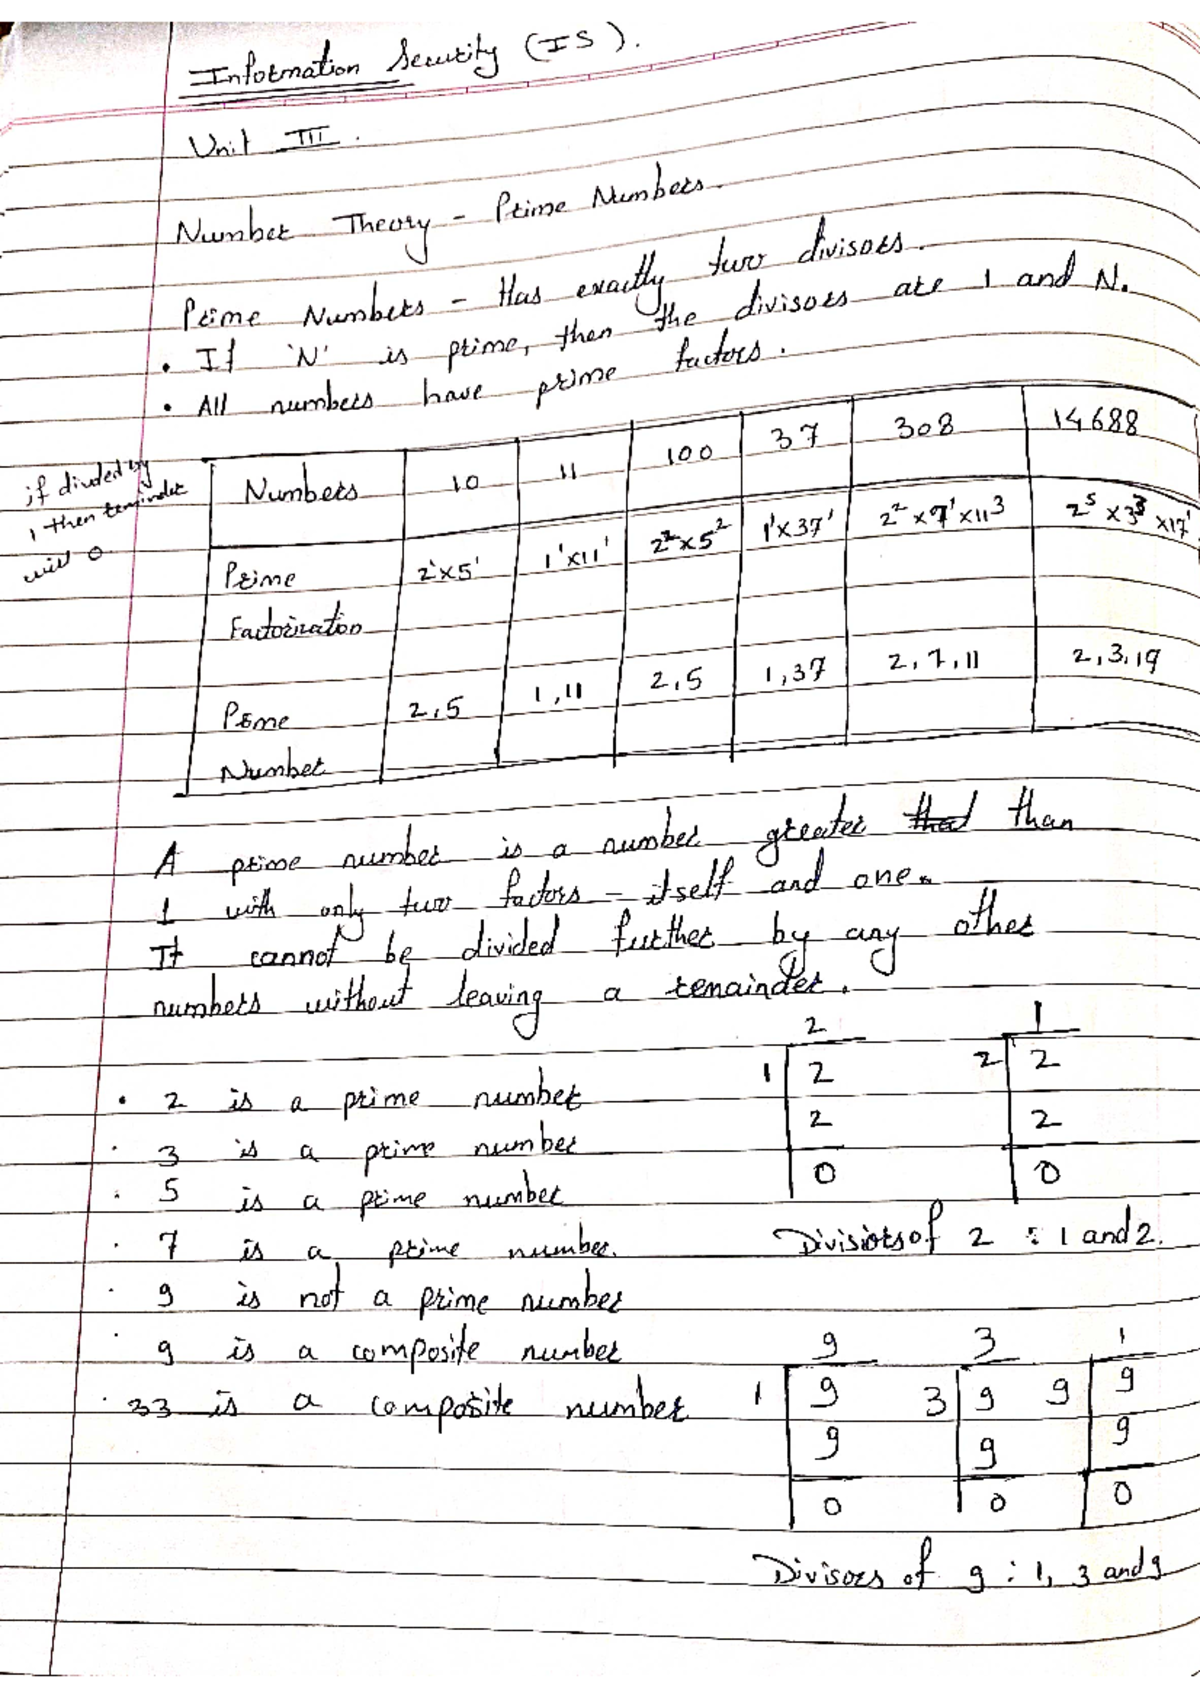 Information Security (IS).
Unit III.
Number Theory - Prime Numbers.
Prime Numbers - Has exactly two divisors.
• If 'N' is prime, then the divisors are 1 and N.
• All numbers have prime factors.
if divided by
1 then reminder
will 0
Numbers 10 11 100 37 308 14688
Prime Factorization 2¹×5¹ 1¹×11¹ 2²×5² 1¹×37¹ 2²×7¹×11³ 2⁵×3³×17¹
Prime Number 2,5 1,11 2,5 1,37 2,7,11 2,3,19
A prime number is a number greater than
1 with only two factors - itself and one.
It cannot be divided further by any other
numbers without leaving a remainder.
• 2 is a prime number
• 3 is a prime number
• 5 is a prime number
• 7 is a prime number.
• 9 is not a prime number
• 9 is a composite number
• 33 is a composite number
2 1
1 2 2 2
2 2
0 0
Divisiors of 2 : 1 and 2.
9 3 1
1 9 3 9 9 9
9 9 9
0 0 0
Divisors of 9 : 1, 3 and 9